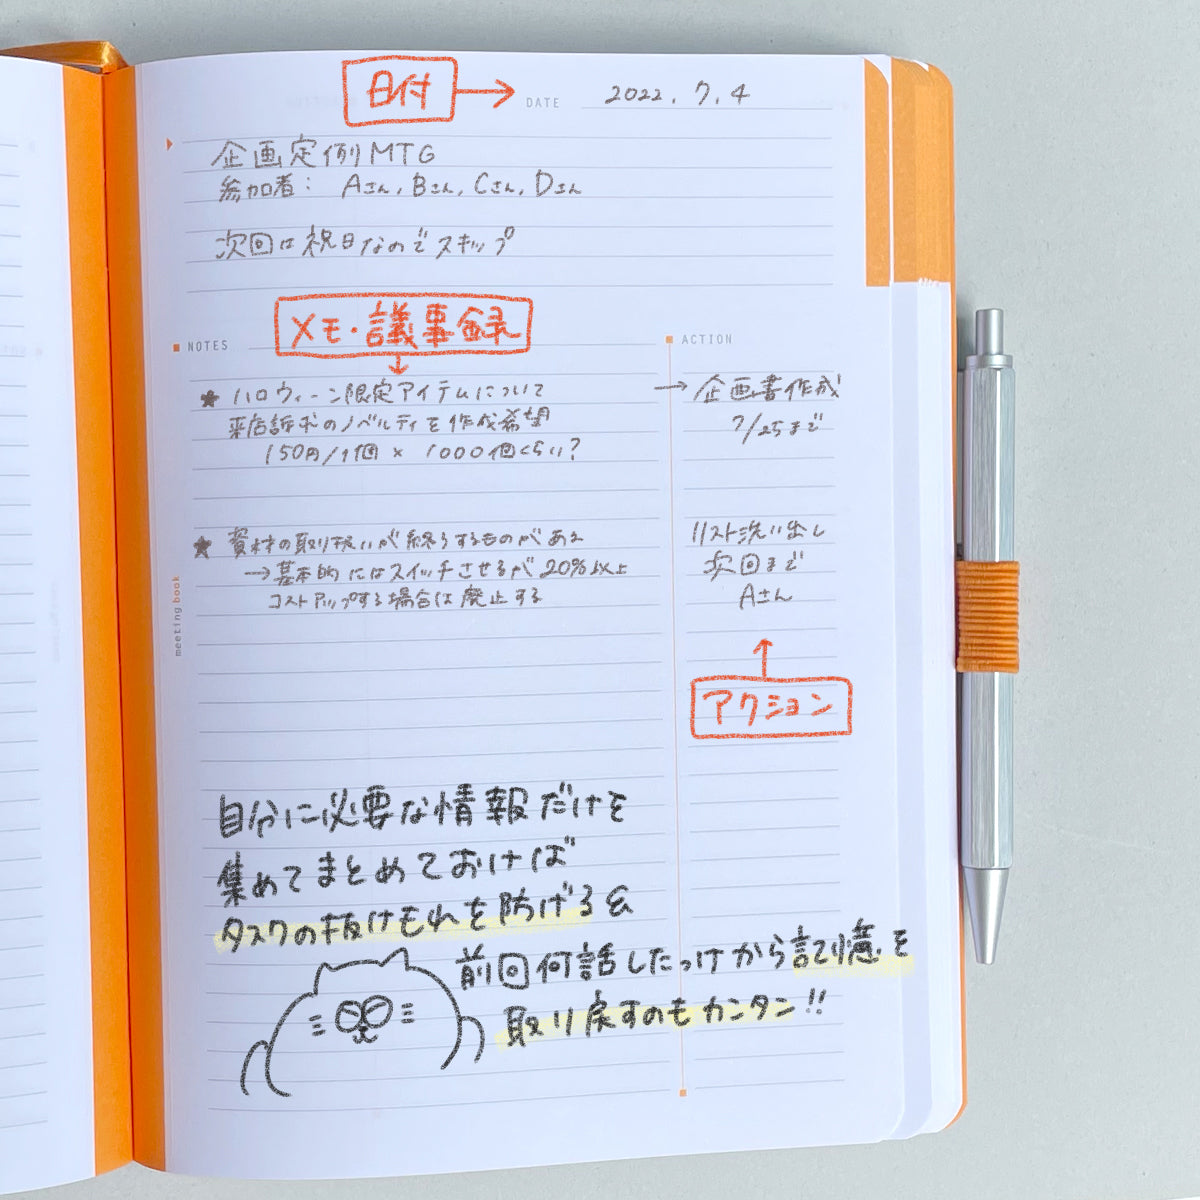 日付 →
DATE 2022. 7. 4
企画定例MTG
参加者： Aさん, Bさん, Cさん, Dさん
次回は祝日なのでスキップ
メモ・議事録
NOTES
★ ハロウィーン限定アイテムについて
来店訴求のノベルティを作成希望
150円/1個 × 1000個くらい?
★ 資材の取り扱いが終了するものがある
→基本的にはスイッチさせるが20%以上
コストアップする場合は廃止する
ACTION
→ 企画書作成
7/25まで
リスト洗い出し
次回まで
Aさん
アクション
meeting book
自分に必要な情報だけを
集めてまとめておけば
タスクの抜けもれを防げる&
前回何話したっけから記憶を
取り戻すのもカンタン!!